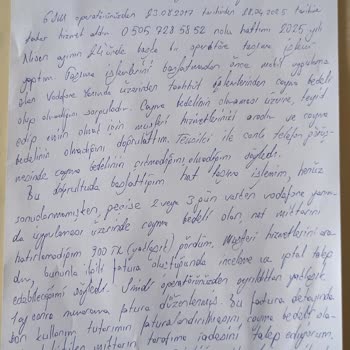 GSM operatöründen 23.08.2017 tarihinden 28.04.2025 tarihine
kadar hizmet aldım. 0 505 728 58 52 nolu hattımı 2025 yılı
Nisan ayının 21'inde başka bir operatöre taşıma işlemi
yaptım. Taşıma işlemlerini başlatmadan önce mobil uygulama
olan Vodafone Yanımda üzerinden taahhüt işlemlerinden cayma bedeli
olup olmadığını sorguladım. Cayma bedelinin olmaması üzere, teyit
edip emin olmak için müşteri hizmetlerini aradım ve cayma
bedelinin olmadığını doğrulattım. Temsilci ile canlı telefon görüş-
mesinde cayma bedelinin çıkmadığını, olmadığını söyledi.
Bu doğrultuda başlattığım hat taşıma işlemim, henüz
sonuçlanmamışken, peşine 2 veya 3 gün vakten vodafone yanım-
da uygulaması üzerinde cayma bedeli olan, net miktarını
hatırlamadığım 900 TL (yaklaşık) gördüm. Müşteri hizmetlerini ara-
dım, bununla ilgili fatura oluştuğunda inceleme ve iptal talep
edebileceğimi söyledi. Şimdi operatöründen ayrıldıktan yaklaşık
1 ay sonra numarama fatura düzenlenmiş. Bu fatura detayında
kullanım tutarının faturalandırılmasını, cayma bedeli ola-
miktarın tarafıma iadesini talep ediyorum.